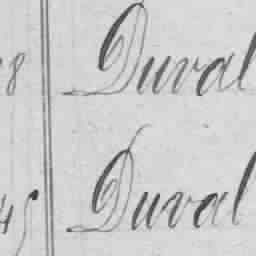 8 Duval
45 Duval